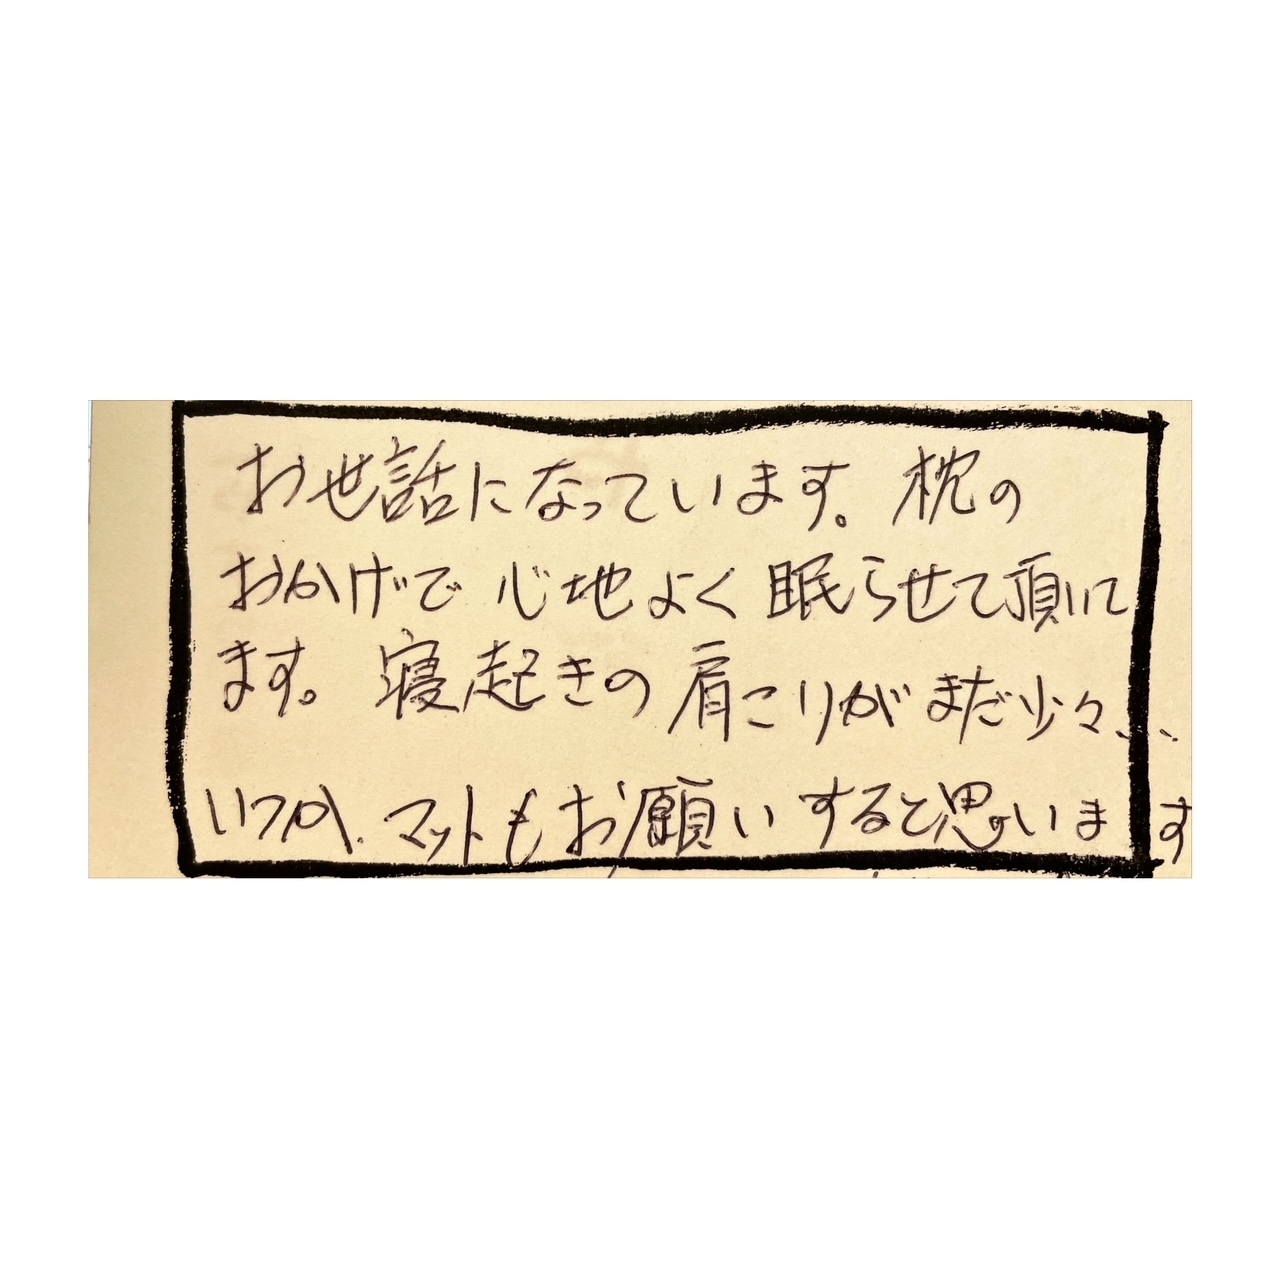 お世話になっています。枕の
おかげで心地よく眠らせて頂いて
ます。寝起きの肩こりがまだ少々...
いつか、マットもお願いすると思います